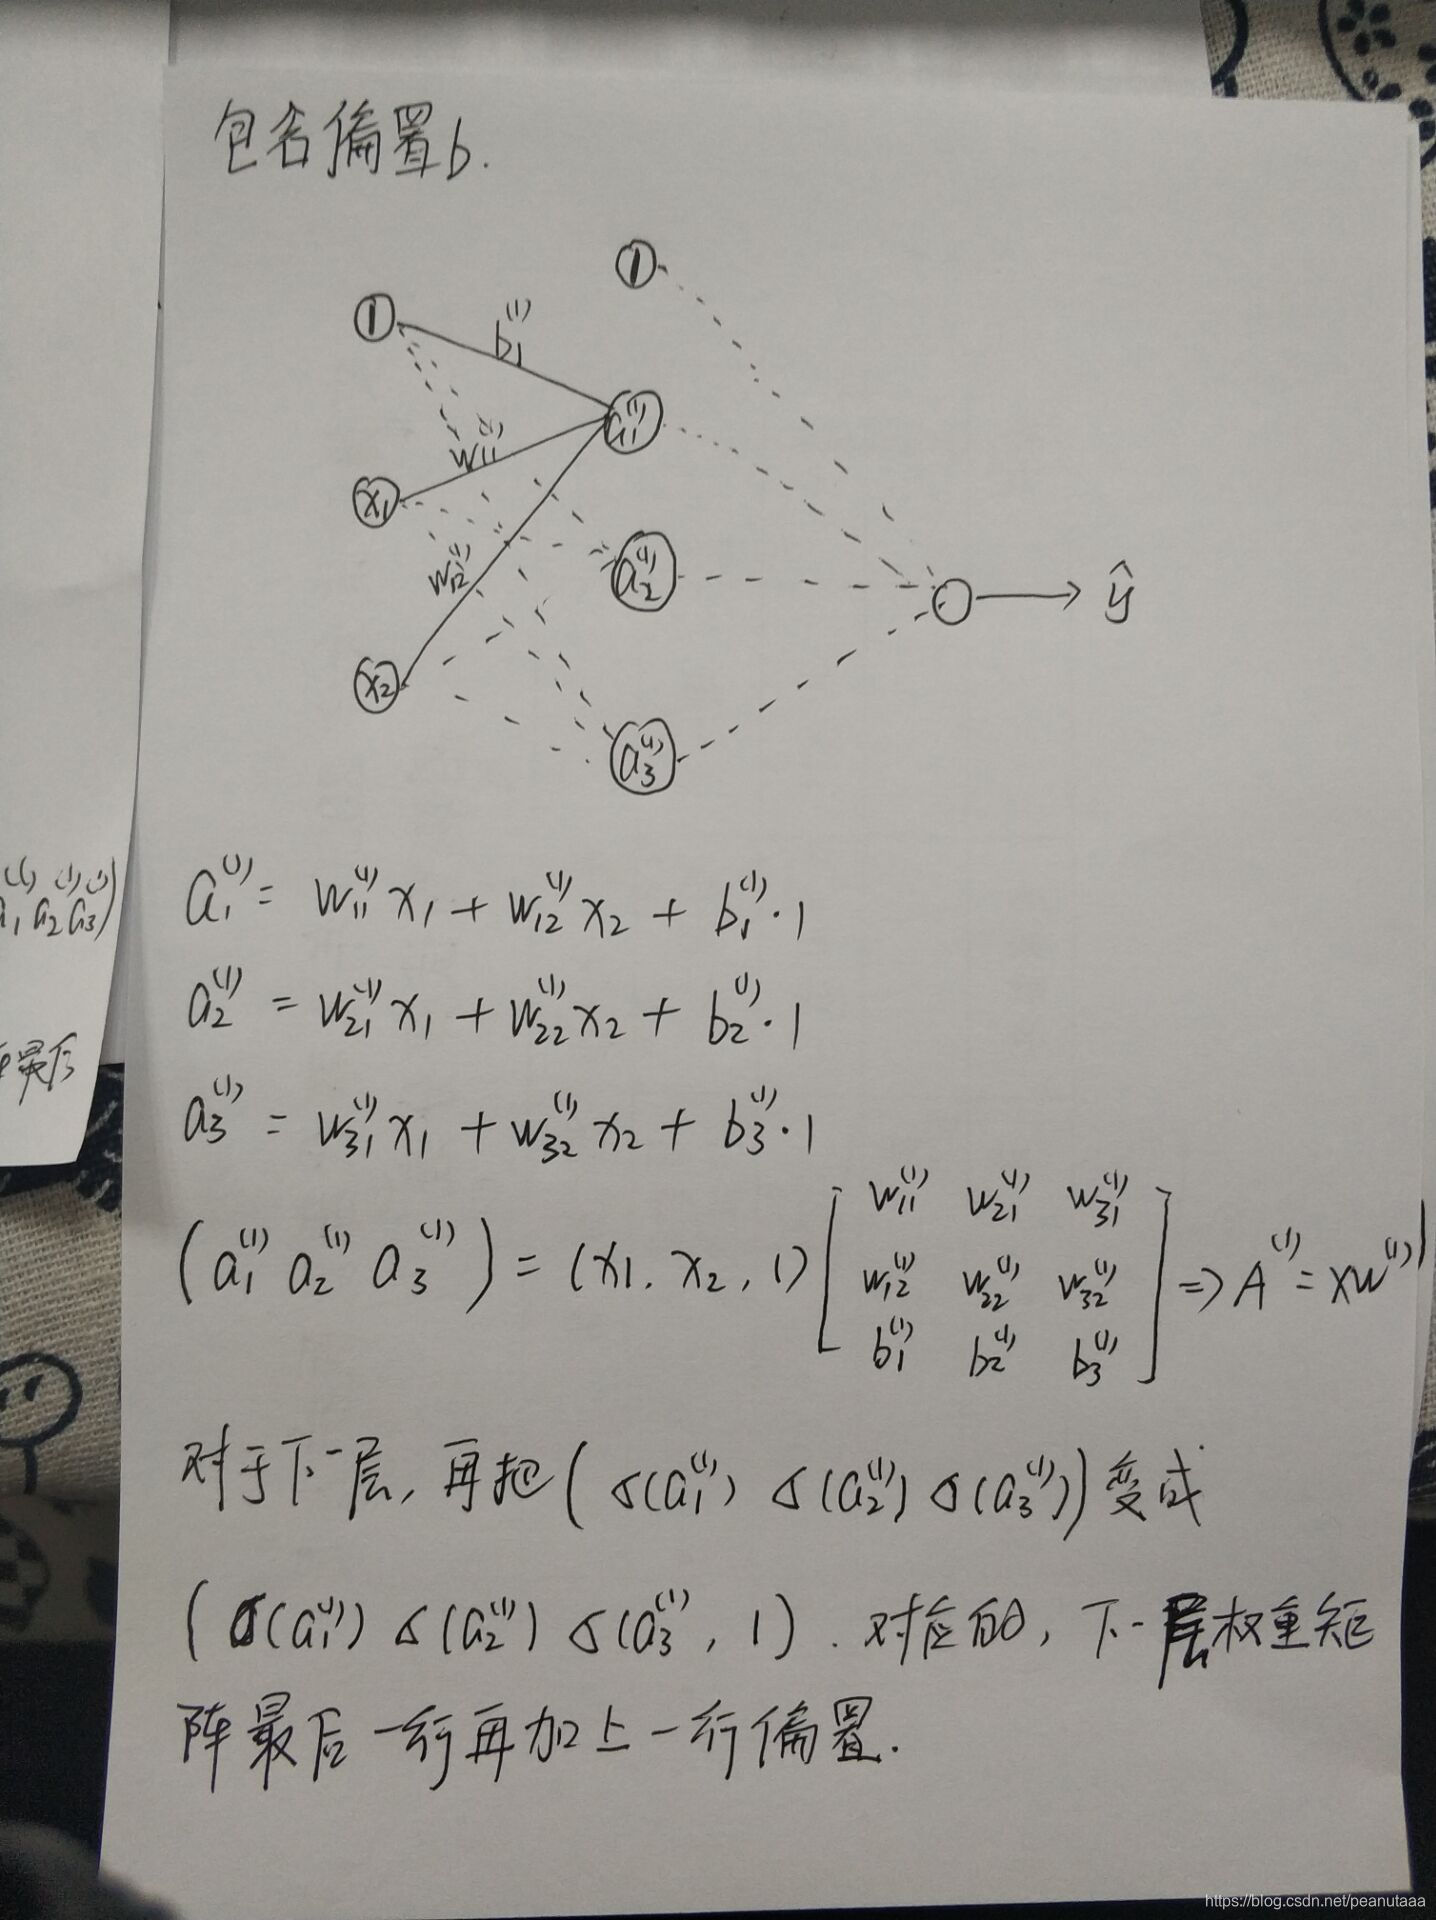 包含偏置b.
1
1
b₁⁽¹⁾
a₁⁽¹⁾
w₁₁⁽¹⁾
x₁
w₁₂⁽¹⁾
a₂⁽¹⁾
ŷ
x₂
a₃⁽¹⁾
a₁⁽¹⁾ = w₁₁⁽¹⁾x₁ + w₁₂⁽¹⁾x₂ + b₁⁽¹⁾·1
a₂⁽¹⁾ = w₂₁⁽¹⁾x₁ + w₂₂⁽¹⁾x₂ + b₂⁽¹⁾·1
a₃⁽¹⁾ = w₃₁⁽¹⁾x₁ + w₃₂⁽¹⁾x₂ + b₃⁽¹⁾·1
(a₁⁽¹⁾ a₂⁽¹⁾ a₃⁽¹⁾) = (x₁, x₂, 1) [w₁₁⁽¹⁾ w₂₁⁽¹⁾ w₃₁⁽¹⁾
w₁₂⁽¹⁾ w₂₂⁽¹⁾ w₃₂⁽¹⁾
b₁⁽¹⁾ b₂⁽¹⁾ b₃⁽¹⁾] => A⁽¹⁾ = XW⁽¹⁾
对于下一层, 再把(σ(a₁⁽¹⁾) σ(a₂⁽¹⁾) σ(a₃⁽¹⁾))变成
(σ(a₁⁽¹⁾) σ(a₂⁽¹⁾) σ(a₃⁽¹⁾, 1). 对应的, 下一层权重矩
阵最后一行再加上一行偏置.
a₁⁽¹⁾ a₂⁽¹⁾ a₃⁽¹⁾)
最后
https://blog.csdn.net/peanutaaa